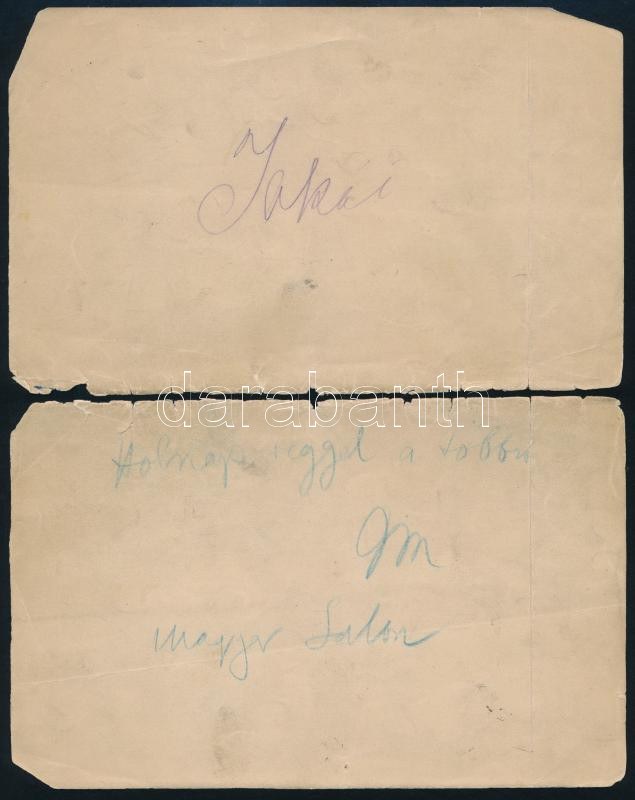 Jókai
darabanth
Holnap reggel a többi
JM
Magyar Salon